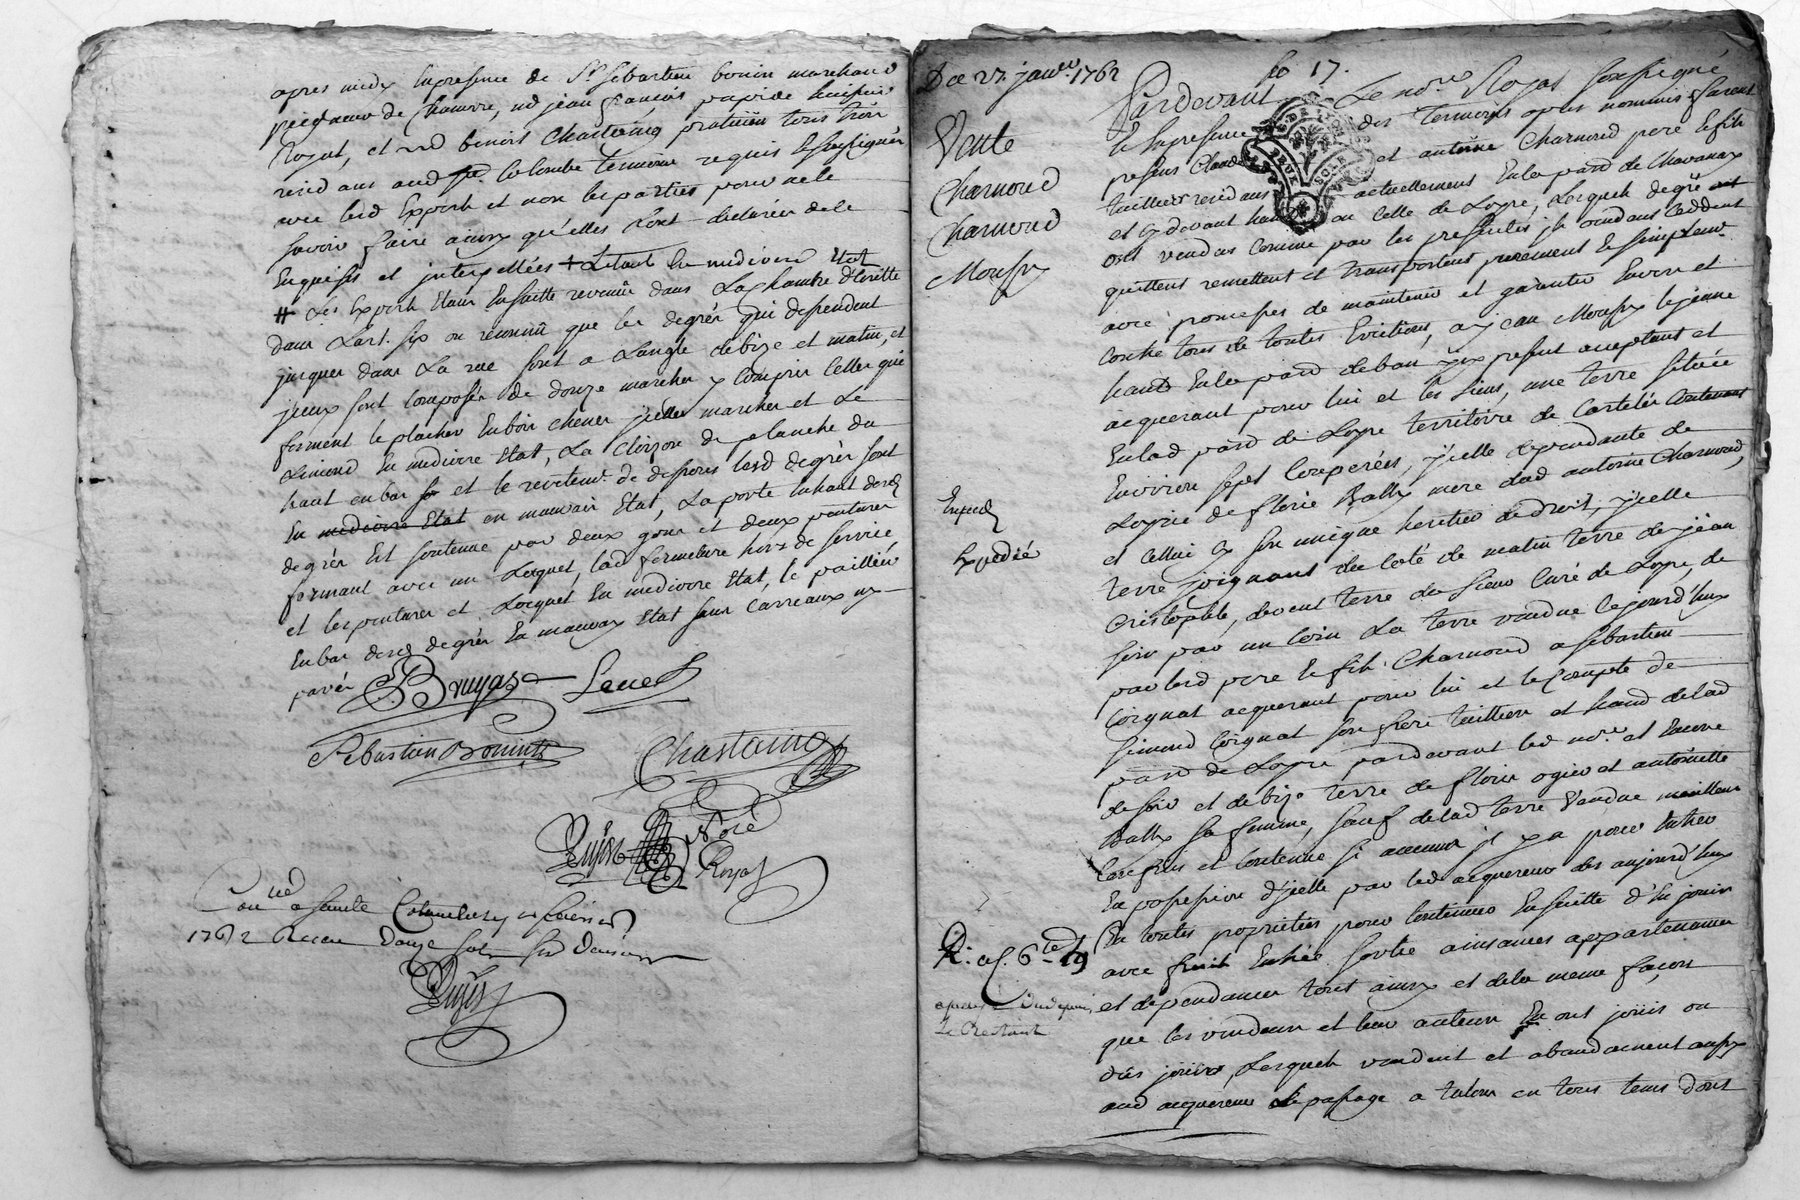 apres midy En presence de Sr Sebastien bonin marchand
de Chauvre, md jean françois papide huissier
Royal, et md benoit Chastaing praticien tous trois
residans aud St Colombe temoins requis Et soussignés
avec lesd Experts et non les parties pour ne le
savoir faire ainsy qu'elles L'ont declaré de ce
Enquises et interpellées + L. tout En mediocre Etat
# Les Experts Etant Ensuitte revenûs dans La Chambre
dans L'art. six on reconnû que les degrés qui dependent
jusques dans La rue sont a L'angle de bize et matin, et
jceux sont Composés de douze marches y Compris Celles que
forment le placher En bois chene jcelles marches et Le
Limond En mediocre Etat, La Cloizon de planche du
haut en bas et le revetemt de dessous lesd degrés sont
En mediocre Etat en mauvais Etat, La porte En haut desd
degrés Est soutenue par deux gons et deux pentures
fermant avec un Loquet, lad fermeture hors de service
et les pentures et Loquet En mediocre Etat, le paillier
En bas desd degrés En mauvais Etat sans Carreaux ny
pavés
Bruyas
Sebastien Bonin
Chastaing
Dujast Nore
Royal
Conlé a sainte Colombe
1762 Receu Douze sols six deniers
Dujast
Du 27 janvr 1762
fo 17.
Vente
Charmond
Charmond
Moussy
Expedié
R. al. 6te 19
Le Restant
Pardevant Le nore Royal soussigné
Et En presence des Temoins apres nommés furent
presens Claude et antoine Charmond pere Et fils
tailleurs residans actuellement En la parr de Chavanay
et Cydevant hants en Celle de Loyre, Lesquels de gré
ont vendus Comme par les presentes jls vendent Ceddent
quittent remettent et transportent purement Et simplemt
avec promesses de maintenir et garentir Envers et
contre tous de toutes Evictions, a jean Moussy le jeune
hants En la parr de ban jcy present acceptant et
acquerant pour lui et les siens, une terre scituée
En lad parr de Loyre territoire de Cartelés Contenant
Environ sept Couperées, jcelle dependante de
Loyrie de florie Bally mere dud antoine Charmond,
et Cellui Cy son unique heritier de droit, jcelle
terre joignant du Coté de matin terre de jean
Cristophle, de vent terre du Sieur Curé de Loyre, de
soir par un Coin La terre vendue Cejourd'huy
par lesd pere Et fils Charmond a sebastien
Coignat acquerant pour lui et le Compte de
Simond Coignat son frere tuillier et hand de lad
parr de Loyre pardevant led nore et Encore
de soir et de bize terre de florie ogier et antoinette
Bally sa femme, sauf de lad terre Vendue meilleurs
Confins et Contenue si aucuns jl y a pour Entrer
En possession d'jcelle par led acquereur des aujourd'huy
En toutes proprietés pour Continuer Ensuitte d'En jouir
avec fruit Entrée sortie aisances appartenances
et dependances tout ainsy et de la meme façon
que les vendeurs et leur auteurs En ont joüis ou
dus joüir, Lesquels vendent et abandonnent aussy
aud acquereur Le passage a talon en tous tems dont